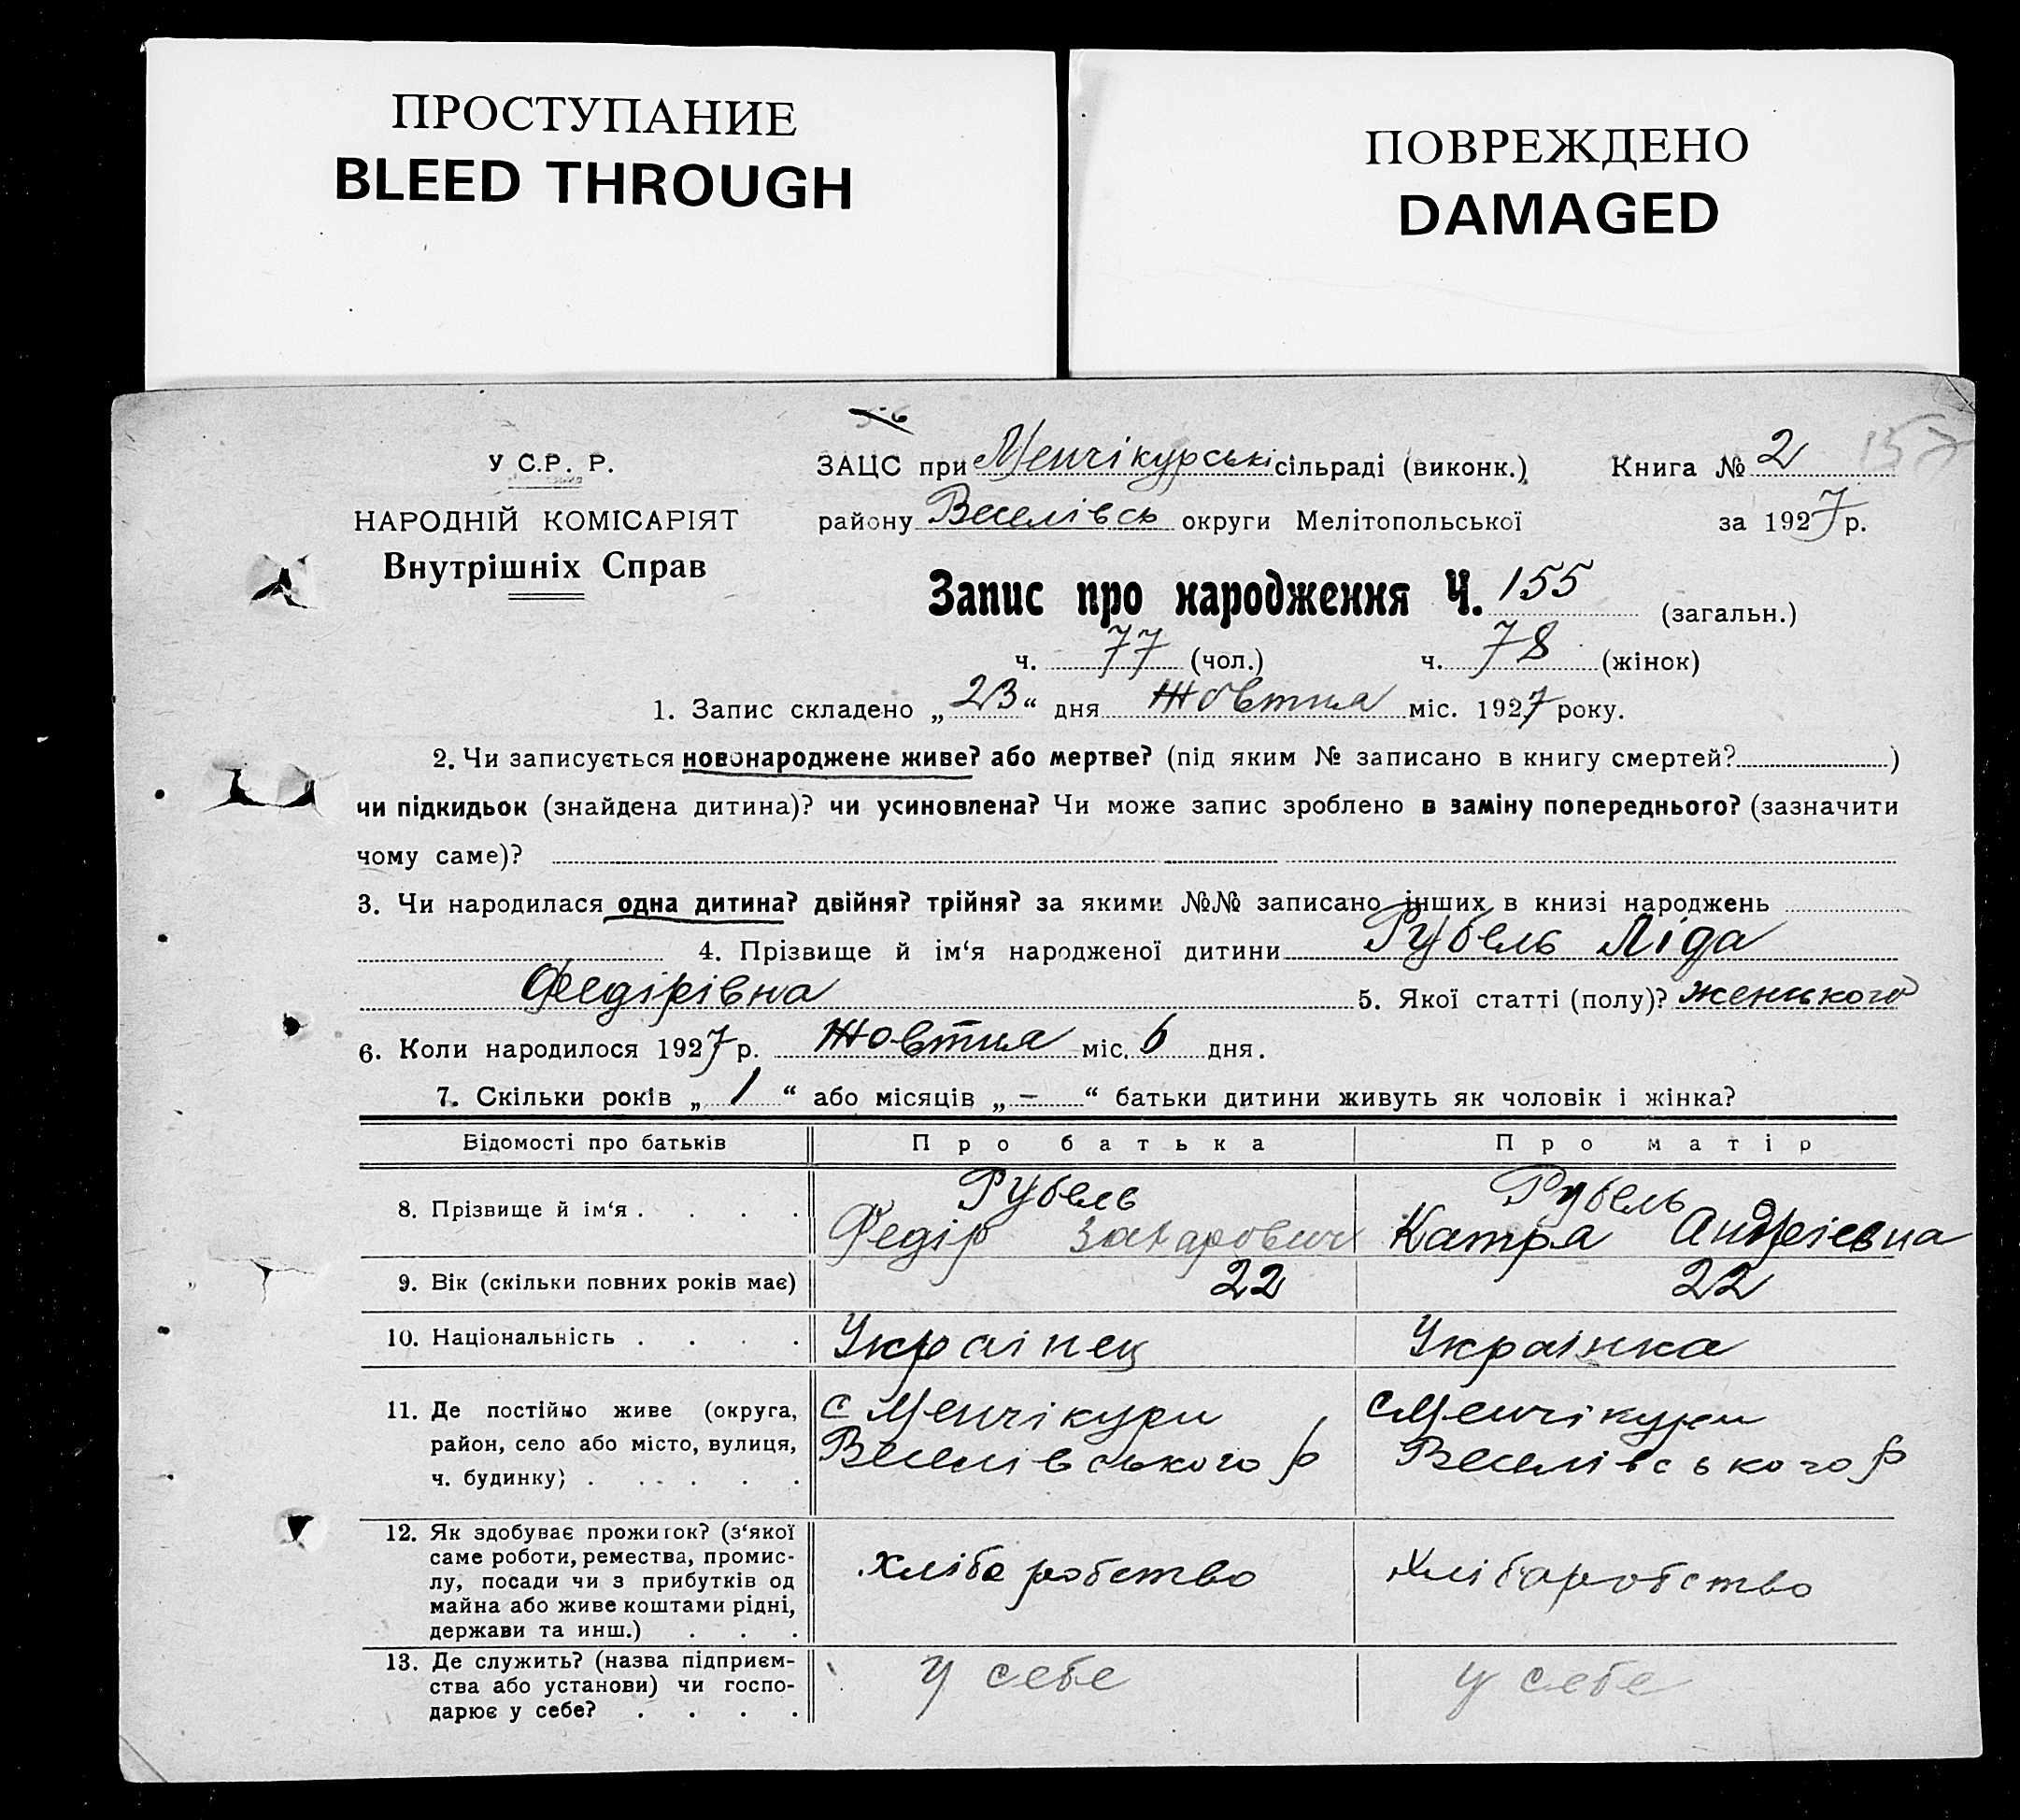 ПРОСТУПАНИЕ
BLEED THROUGH
ПОВРЕЖДЕНО
DAMAGED
157
У С.Р. Р.
НАРОДНІЙ КОМІСАРІЯТ
Внутрішніх Справ
ЗАЦС при Менчікурські сільраді (виконк.) Книга № 2
району Веселівсь округи Мелітопольської за 1927 р.
Запис про народження Ч. 155 (загальн.)
ч. 77 (чол.) ч. 78 (жінок)
1. Запис складено „23“ дня Жовтня міс. 1927 року.
2. Чи записується новонароджене живе? або мертве? (під яким № записано в книгу смертей? )
чи підкидьок (знайдена дитина)? чи усиновлена? Чи може запис зроблено в заміну попереднього? (зазначити
чому саме)?
3. Чи народилася одна дитина? двійня? трійня? за якими №№ записано інших в книзі народжень
4. Прізвище й ім‘я народженої дитини Рубель Ліда
Федірівна 5. Якої статті (полу)? женського
6. Коли народилося 1927 р. Жовтня міс. 6 дня.
7. Скільки років „1“ або місяців „–“ батьки дитини живуть як чоловік і жінка?
Відомості про батьків Про батька Про матір
8. Прізвище й ім‘я . . . . Рубель Рубель
Федір Захарович Катря Андрієвна
9. Вік (скільки повних років має) 22 22
10. Національність . . . . Украінец Украінка
11. Де постійно живе (округа, с Менчікури с Менчікури
район, село або місто, вулиця, Веселівського р Веселівського р
ч. будинку) . . . . .
12. Як здобуває прожиток? (з‘якої
саме роботи, ремества, промис- хлібаробство хлібаробство
лу, посади чи з прибутків од
майна або живе коштами рідні,
держави та инш.) . . .
13. Де служить? (назва підприєм- у себе у себе
ства або установи) чи госпо-
дарює у себе? . . . .